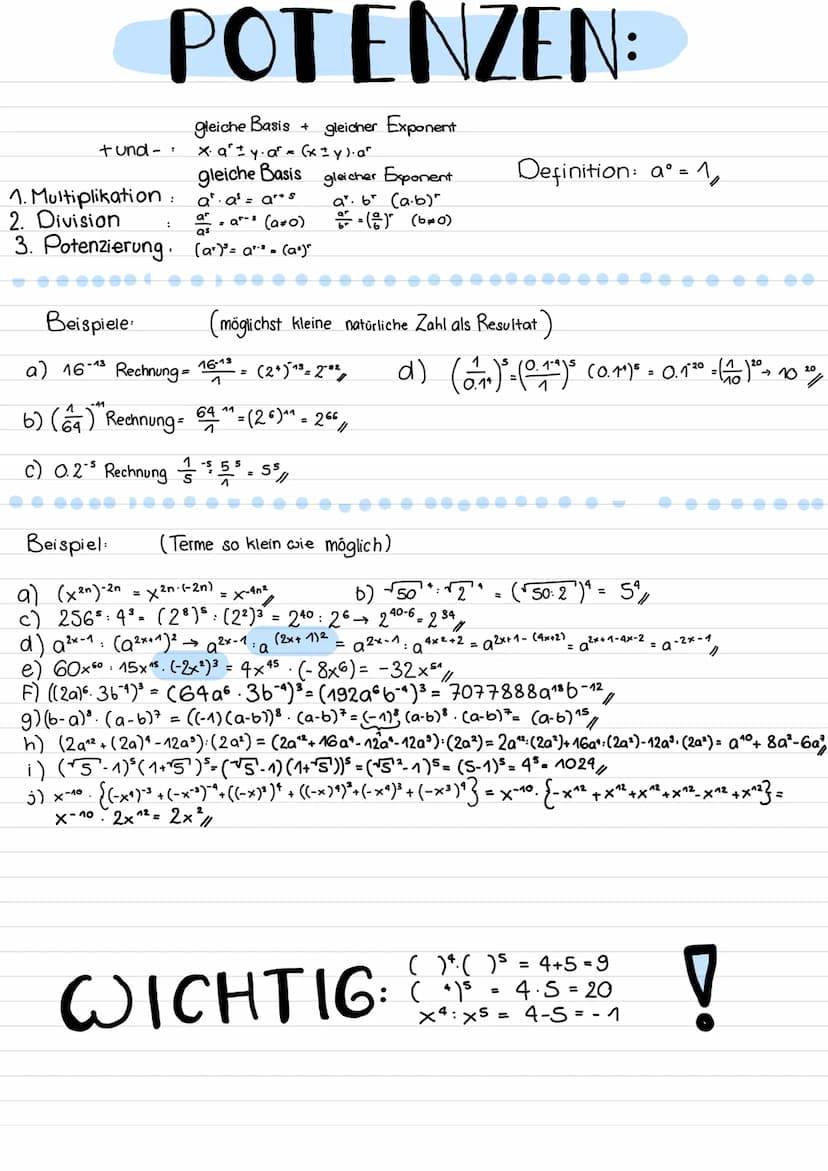 POTENZEN:
gleiche Basis + gleicher Exponent
+ und - : x·aʳ ± y·aʳ = (x ± y)·aʳ
gleiche Basis gleicher Exponent Definition: a⁰ = 1
1. Multiplikation : aʳ·aˢ = aʳ⁺ˢ aʳ·bʳ (a·b)ʳ
2. Division : aʳ/aˢ = aʳ⁻ˢ (a≠0) aʳ/bʳ = (a/b)ʳ (b≠0)
3. Potenzierung. (aʳ)ˢ = aʳ·ˢ = (aˢ)ʳ
Beispiele: (möglichst kleine natürliche Zahl als Resultat)
a) 16⁻¹³ Rechnung = = (2⁴)⁻¹³ = d) = (0.1⁻⁴/1)⁵ = 0.1⁻²⁰ = → 10²⁰
b) (1/64)⁻¹¹ Rechnung = 64/1 ¹¹ = (2⁶)¹¹ = 2⁶⁶
c) 0.2⁻⁵ Rechnung 1/5 ⁻⁵ = 5/1 ⁵ = 5⁵
Beispiel: (Terme so klein wie möglich)
a) (x²ⁿ)⁻²ⁿ = x²ⁿ·⁽⁻²ⁿ⁾ = x⁻⁴ⁿ² b) √50⁴ : √2⁴ = (√50:2)⁴ = 5⁴
c) 256⁵ : 4³ = (2⁸)⁵ : (2²)³ = 2⁴⁰ : 2⁶ → 2⁴⁰⁻⁶ = 2³⁴
d) a²ˣ⁻¹ : (a²ˣ⁺¹)² → a²ˣ⁻¹ : a⁽²ˣ⁺¹⁾² = a²ˣ⁻¹ : a⁴ˣ⁺² = a²ˣ⁺¹⁻⁽⁴ˣ⁺²⁾ = a²ˣ⁺¹⁻⁴ˣ⁻² = a⁻²ˣ⁻¹
e) 60x⁶⁰ : 15x¹⁵ · (-2x²)³ = 4x⁴⁵ · (-8x⁶) = -32x⁵¹
f) ((2a)⁶ · 3b⁻⁴)³ = (64a⁶ · 3b⁻⁴)³ = (192a⁶b⁻⁴)³ = 7077888a¹⁸b⁻¹²
g) (b-a)⁸ · (a-b)⁷ = ((-1)(a-b))⁸ · (a-b)⁷ = (-1)⁸ (a-b)⁸ · (a-b)⁷ = (a-b)¹⁵
h) (2a¹² + (2a)⁴ - 12a⁵) : (2a²) = : (2a²) = 2a¹² : (2a²) + 16a⁴ : (2a²) - 12a⁵ : (2a²) = a¹⁰ + 8a² - 6a³
i) (√5 - 1)⁵ (1+√5)⁵ = (√5 - 1)(1+√5))⁵ = (√5² - 1)⁵ = (5-1)⁵ = 4⁵ = 1024
j) x⁻¹⁰ · {(-x⁴)⁻³ + (-x⁻³)⁻⁴ + ((-x)³)⁴ + ((-x)⁴)³ + (-x⁴)³ + (-x³)⁴} = x⁻¹⁰ · {-x¹² + x¹² + x¹² + x¹² - x¹² + x¹²} =
x⁻¹⁰ · 2x¹² = 2x²
WICHTIG: ( )⁴·( )⁵ = 4+5 = 9
( ⁴)⁵ = 4·5 = 20
x⁴ : x⁵ = 4-5 = -1
!